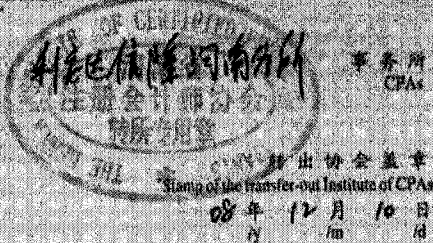 OF CERTIFIED
利安达信隆河南分所
事务所
CPAs
注册会计师协会
转所专用章
THE
转出协会盖章
Stamp of the transfer-out Institute of CPAs
08年 12月 10日
/y /m /d